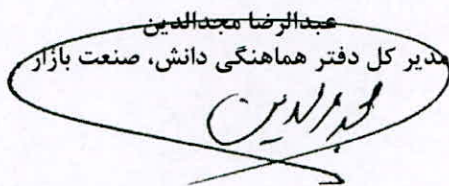 عبدالرضا مجدالدین
مدیر کل دفتر هماهنگی دانش، صنعت بازار
مجدالدین